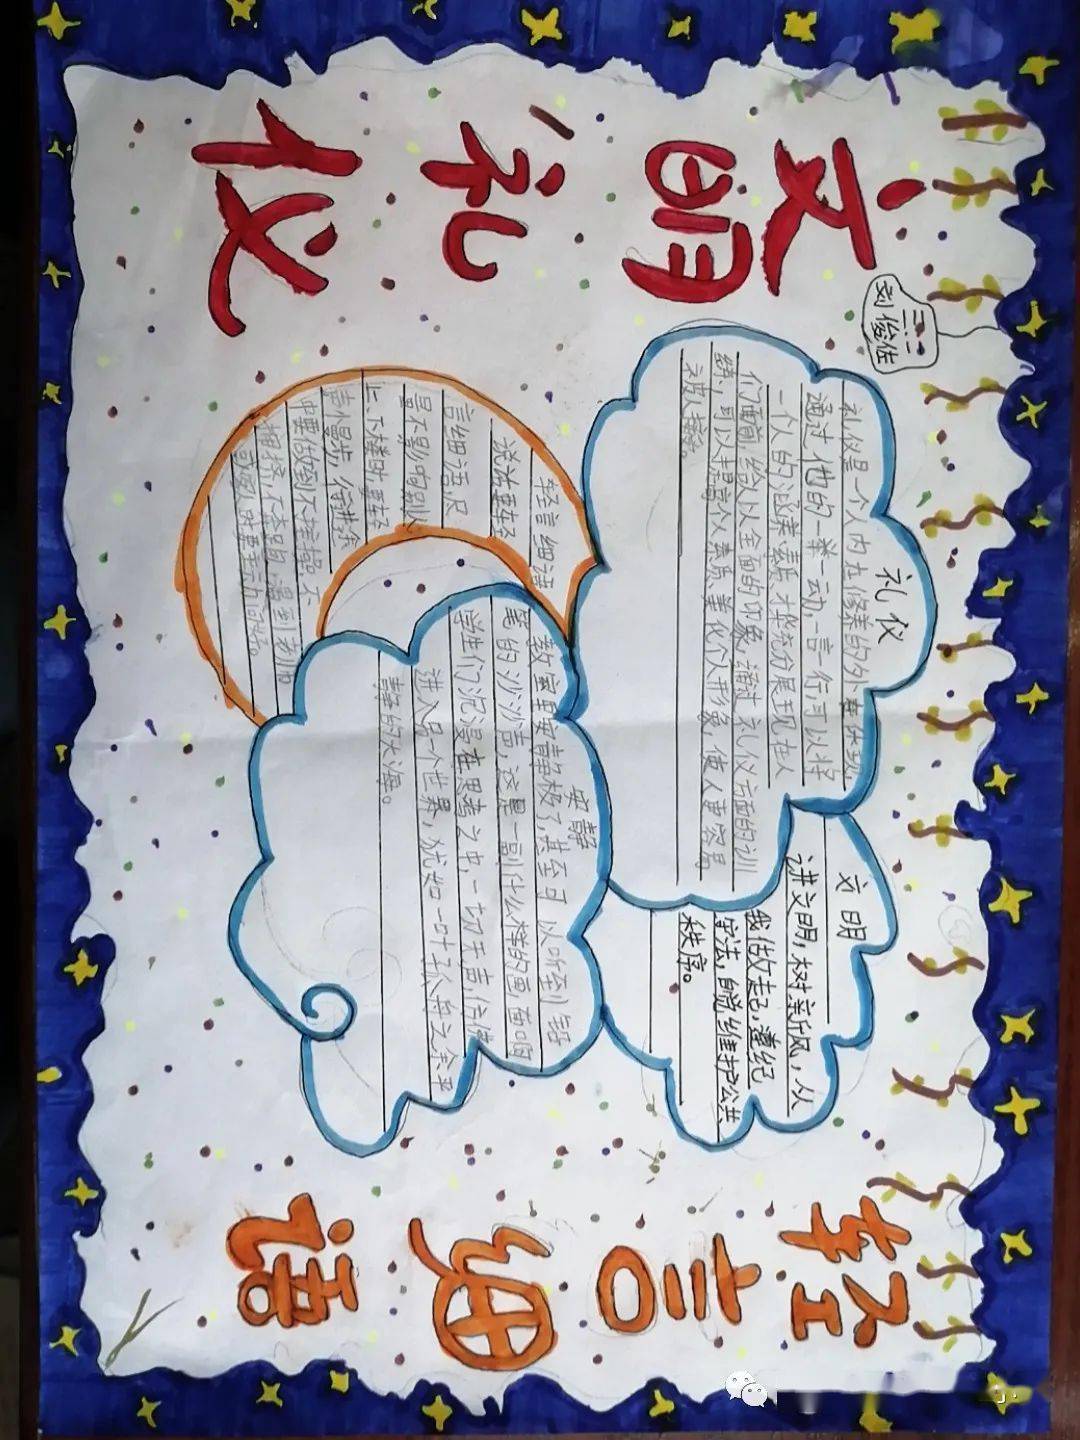 文明礼仪
三.二
礼仪
礼仪是一个人内在修养的外在体现,
通过他的一举一动,一言一行可以将
一个人的涵养素质才华充分展现在人
们面前,给人以全面的印象,通过礼仪方面的训
练,可以提高个人素质,美化个人形象,使人更容易
被人接受。
文明
讲文明,树新风,从
我做起,遵纪
守法,自觉维护公共
秩序。
轻言细语
说话要轻
言细语,尽
量不影响别人
上、下楼时,要轻
走慢步,行进途
中要做到不拉操,不
拥挤,不奔跑,遇到老师
或家人时要主动问好。
安静
教室里安静极了,甚至可以听到铅
笔的沙沙声,这是一副什么样的画面啊
学生们沉浸在思考之中,一切无声,仿佛
进入另一个世界,犹如一叶孤舟之余平
静的大海。
轻言细语